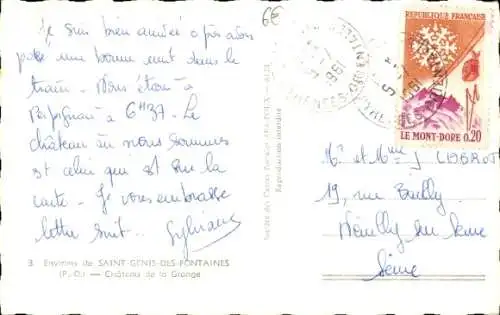 6€
Je suis bien arrivée après avoir
passé une bonne nuit dans le
train. Nous étions à
Perpignan à 6H37. Le
château où nous sommes
est celui qui est sur la
carte. Je vous embrasse
lettre suit. Sylviane
3 Environs de SAINT-GENIS-DES-FONTAINES
(P.-O.) — Château de la Grange
Reproduction interdite
REPUBLIQUE FRANÇAISE
LE MONT-DORE 0,20
Mr et Mme J
19, rue
Neuilly sur Seine
Seine